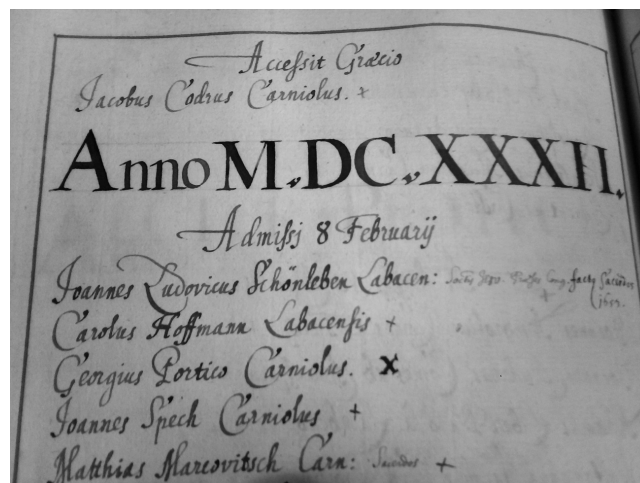 Accessit Græcio
Jacobus Codrus Carniolus. +
Anno M.DC.XXXII.
Admissj 8 Februarij
Joannes Ludovicus Schönleben Labacen: factus Sacerdos
Carolus Hoffmann Labacensis +
Georgius Portico Carniolus. x
Joannes Spech Carniolus +
Matthias Marcovitsch Carn: Sacerdos +